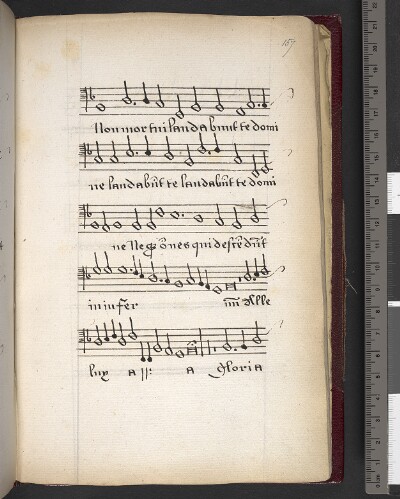 167
Non mor tui landabunt te domi
ne landabūt te landabūt te domi
ne Neq̄ ōnes qui descēdūt
in infer nū Alle
luy a ij: a gloria